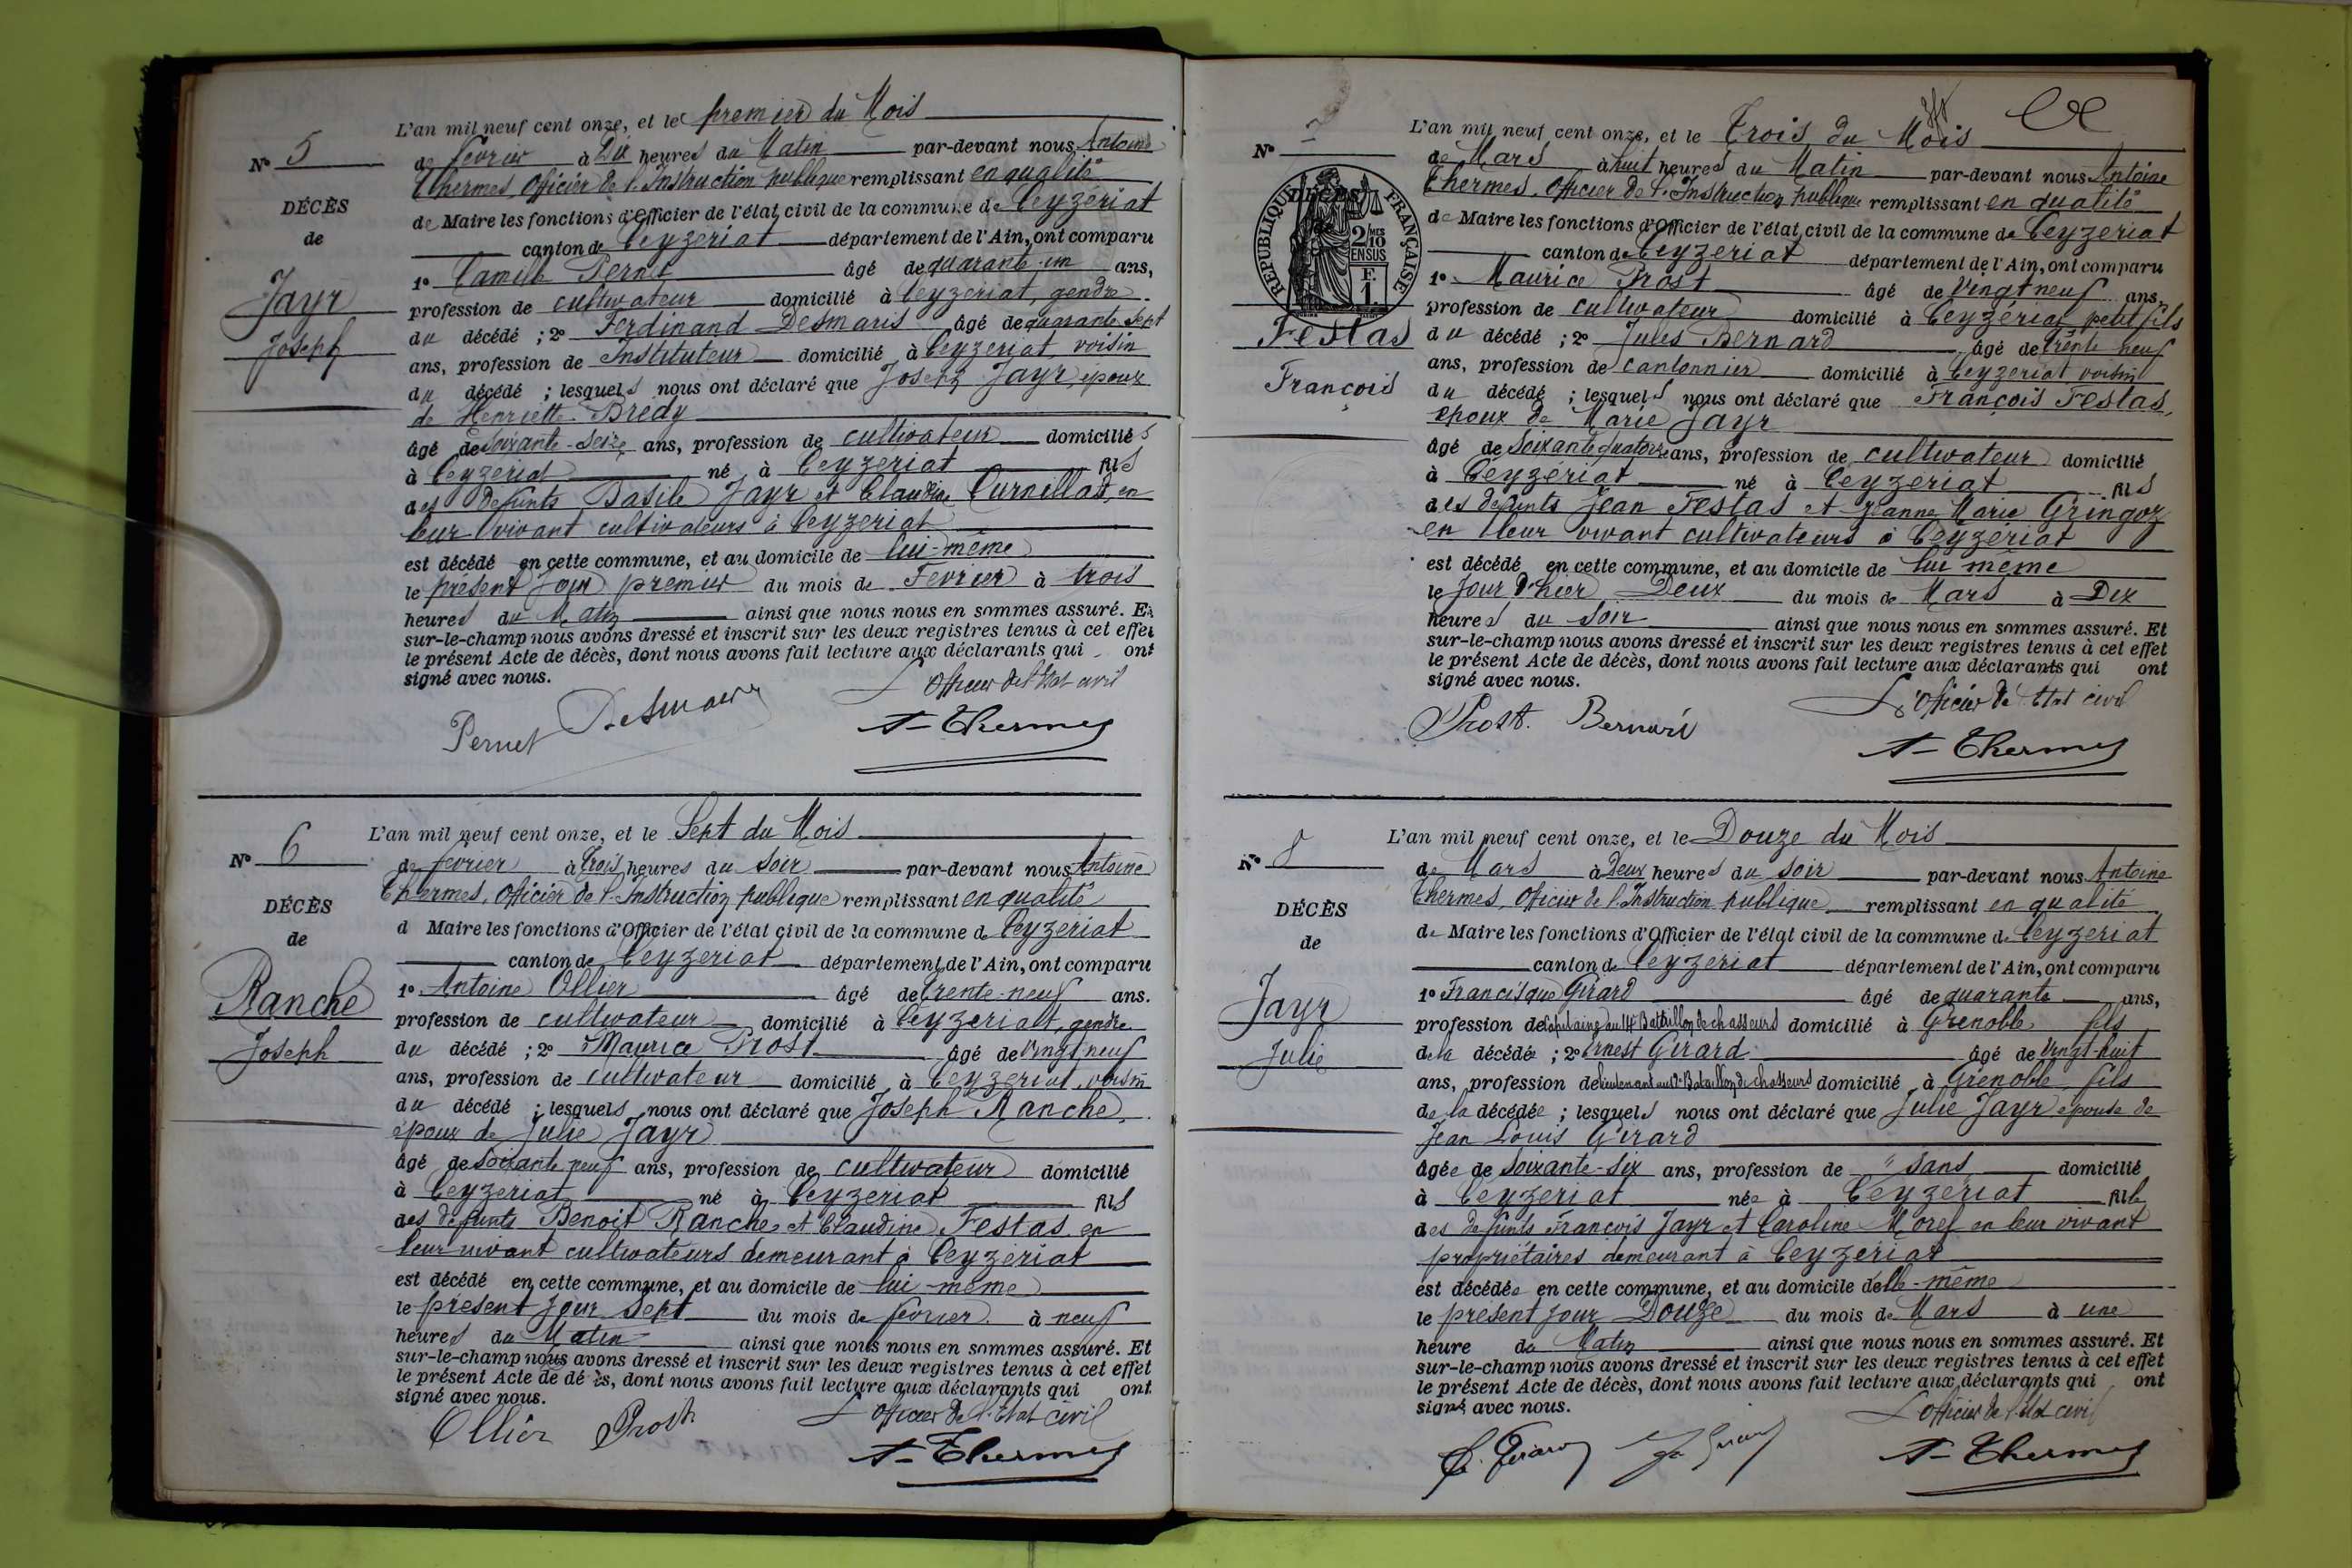 L'an mil neuf cent onze, et le premier du Mois
N° 5
de fevrier à Dix heures du Matin par-devant nous Antoine
Thermes, Officier de l'Instruction publique remplissant en qualité
DÉCÈS
de Maire les fonctions d'Officier de l'état civil de la commune de Ceyzériat
de
canton de Ceyzeriat département de l'Ain, ont comparu
1° Camille Pernet âgé de quarante-un ans,
Jayr
profession de cultivateur domicilié à Ceyzeriat, gendre
du décédé ; 2° Ferdinand Desmaris âgé de quarante sept
Joseph
ans, profession de Instituteur domicilié à Ceyzeriat, voisin
du décédé ; lesquels nous ont déclaré que Joseph Jayr, époux
de Henriette Bredy
âgé de soixante-seize ans, profession de cultivateur domicilié
à Ceyzeriat né à Ceyzeriat fils
des défunts Basile Jayr et Claudine Curnillas, en
leur vivant cultivateurs à Ceyzeriat
est décédé en cette commune, et au domicile de lui-même
le présent jour premier du mois de Fevrier à trois
heures du Matin ainsi que nous nous en sommes assuré. Et
sur-le-champ nous avons dressé et inscrit sur les deux registres tenus à cet effet
le présent Acte de décès, dont nous avons fait lecture aux déclarants qui ont
signé avec nous.
L'officier de l'Etat civil
Pernet Desmaris A-Thermes
L'an mil neuf cent onze, et le Sept du Mois
N° 6
de fevrier à trois heures du Soir par-devant nous Antoine
Thermes, Officier de l'Instruction publique remplissant en qualité
DÉCÈS
d Maire les fonctions d'Officier de l'état civil de la commune de Ceyzeriat
de
canton de Ceyzeriat département de l'Ain, ont comparu
1° Antoine Ollier âgé de trente-neuf ans.
Ranche
profession de cultivateur domicilié à Ceyzeriat, gendre
Joseph
du décédé ; 2° Maurice Prost âgé de vingt neuf
ans, profession de cultivateur domicilié à Ceyzeriat, voisin
du décédé ; lesquels nous ont déclaré que Joseph Ranche,
époux de Julie Jayr
âgé de soixante neuf ans, profession de cultivateur domicilié
à Ceyzeriat né à Ceyzeriat fils
des défunts Benoit Ranche et Claudine Festas en
leur vivant cultivateurs demeurant à Ceyzeriat
est décédé en cette commune, et au domicile de lui-même
le présent jour Sept du mois de fevrier à neuf
heures du Matin ainsi que nous nous en sommes assuré. Et
sur-le-champ nous avons dressé et inscrit sur les deux registres tenus à cet effet
le présent Acte de dé ès, dont nous avons fait lecture aux déclarants qui ont
signé avec nous.
L'officier de l'Etat civil
Ollier Prost A-Thermes
L'an mil neuf cent onze, et le Trois du Mois
N° 7
de Mars à huit heures du Matin par-devant nous Antoine
Thermes, Officier de l'Instruction publique remplissant en qualité
DÉCÈS
RÉPUBLIQUE FRANÇAISE
2/10 MES
EN SUS
F.
1.
de Maire les fonctions d'Officier de l'état civil de la commune de Ceyzeriat
canton de Ceyzeriat département de l'Ain, ont comparu
1° Maurice Prost âgé de vingt neuf ans,
profession de cultivateur domicilié à Ceyzériat petit fils
Festas
du décédé ; 2° Jules Bernard âgé de trente neuf
ans, profession de cantonnier domicilié à Ceyzeriat voisin
François
du décédé ; lesquels nous ont déclaré que François Festas,
époux de Marie Jayr
âgé de soixante quatorze ans, profession de cultivateur domicilié
à Ceyzériat né à Ceyzériat fils
des défunts Jean Festas et Jeanne Marie Gringoz
en leur vivant cultivateurs à Ceyzériat
est décédé en cette commune, et au domicile de lui même
le jour d'hier Deux du mois de Mars à Dix
heures du soir ainsi que nous nous en sommes assuré. Et
sur-le-champ nous avons dressé et inscrit sur les deux registres tenus à cet effet
le présent Acte de décès, dont nous avons fait lecture aux déclarants qui ont
signé avec nous.
L'officier de l'Etat civil
Prost. Bernard A-Thermes
L'an mil neuf cent onze, et le Douze du Mois
N° 8
de Mars à Deux heures du soir par-devant nous Antoine
Thermes, Officier de l'Instruction publique remplissant en qualité
DÉCÈS
de Maire les fonctions d'Officier de l'état civil de la commune de Ceyzeriat
de
canton de Ceyzeriat département de l'Ain, ont comparu
1° Francisque Girard âgé de quarante ans,
Jayr
profession de Capitaine au 14e Bataillon de chasseurs domicilié à Grenoble fils
Julie
de la décédée ; 2° Ernest Girard âgé de vingt-huit
ans, profession de lieutenant au Bataillon de chasseurs domicilié à Grenoble, fils
de la décédée ; lesquels nous ont déclaré que Julie Jayr épouse de
Jean Louis Girard
âgée de soixante-six ans, profession de sans domicilié
à Ceyzeriat née à Ceyzeriat fille
des défunts François Jayr et Caroline Morel en leur vivant
propriétaires demeurant à Ceyzériat
est décédée en cette commune, et au domicile d'elle-même
le présent jour Douze du mois de Mars à une
heure du Matin ainsi que nous nous en sommes assuré. Et
sur-le-champ nous avons dressé et inscrit sur les deux registres tenus à cet effet
le présent Acte de décès, dont nous avons fait lecture aux déclarants qui ont
signé avec nous.
L'officier de l'Etat civil
E. Girard Girard A-Thermes